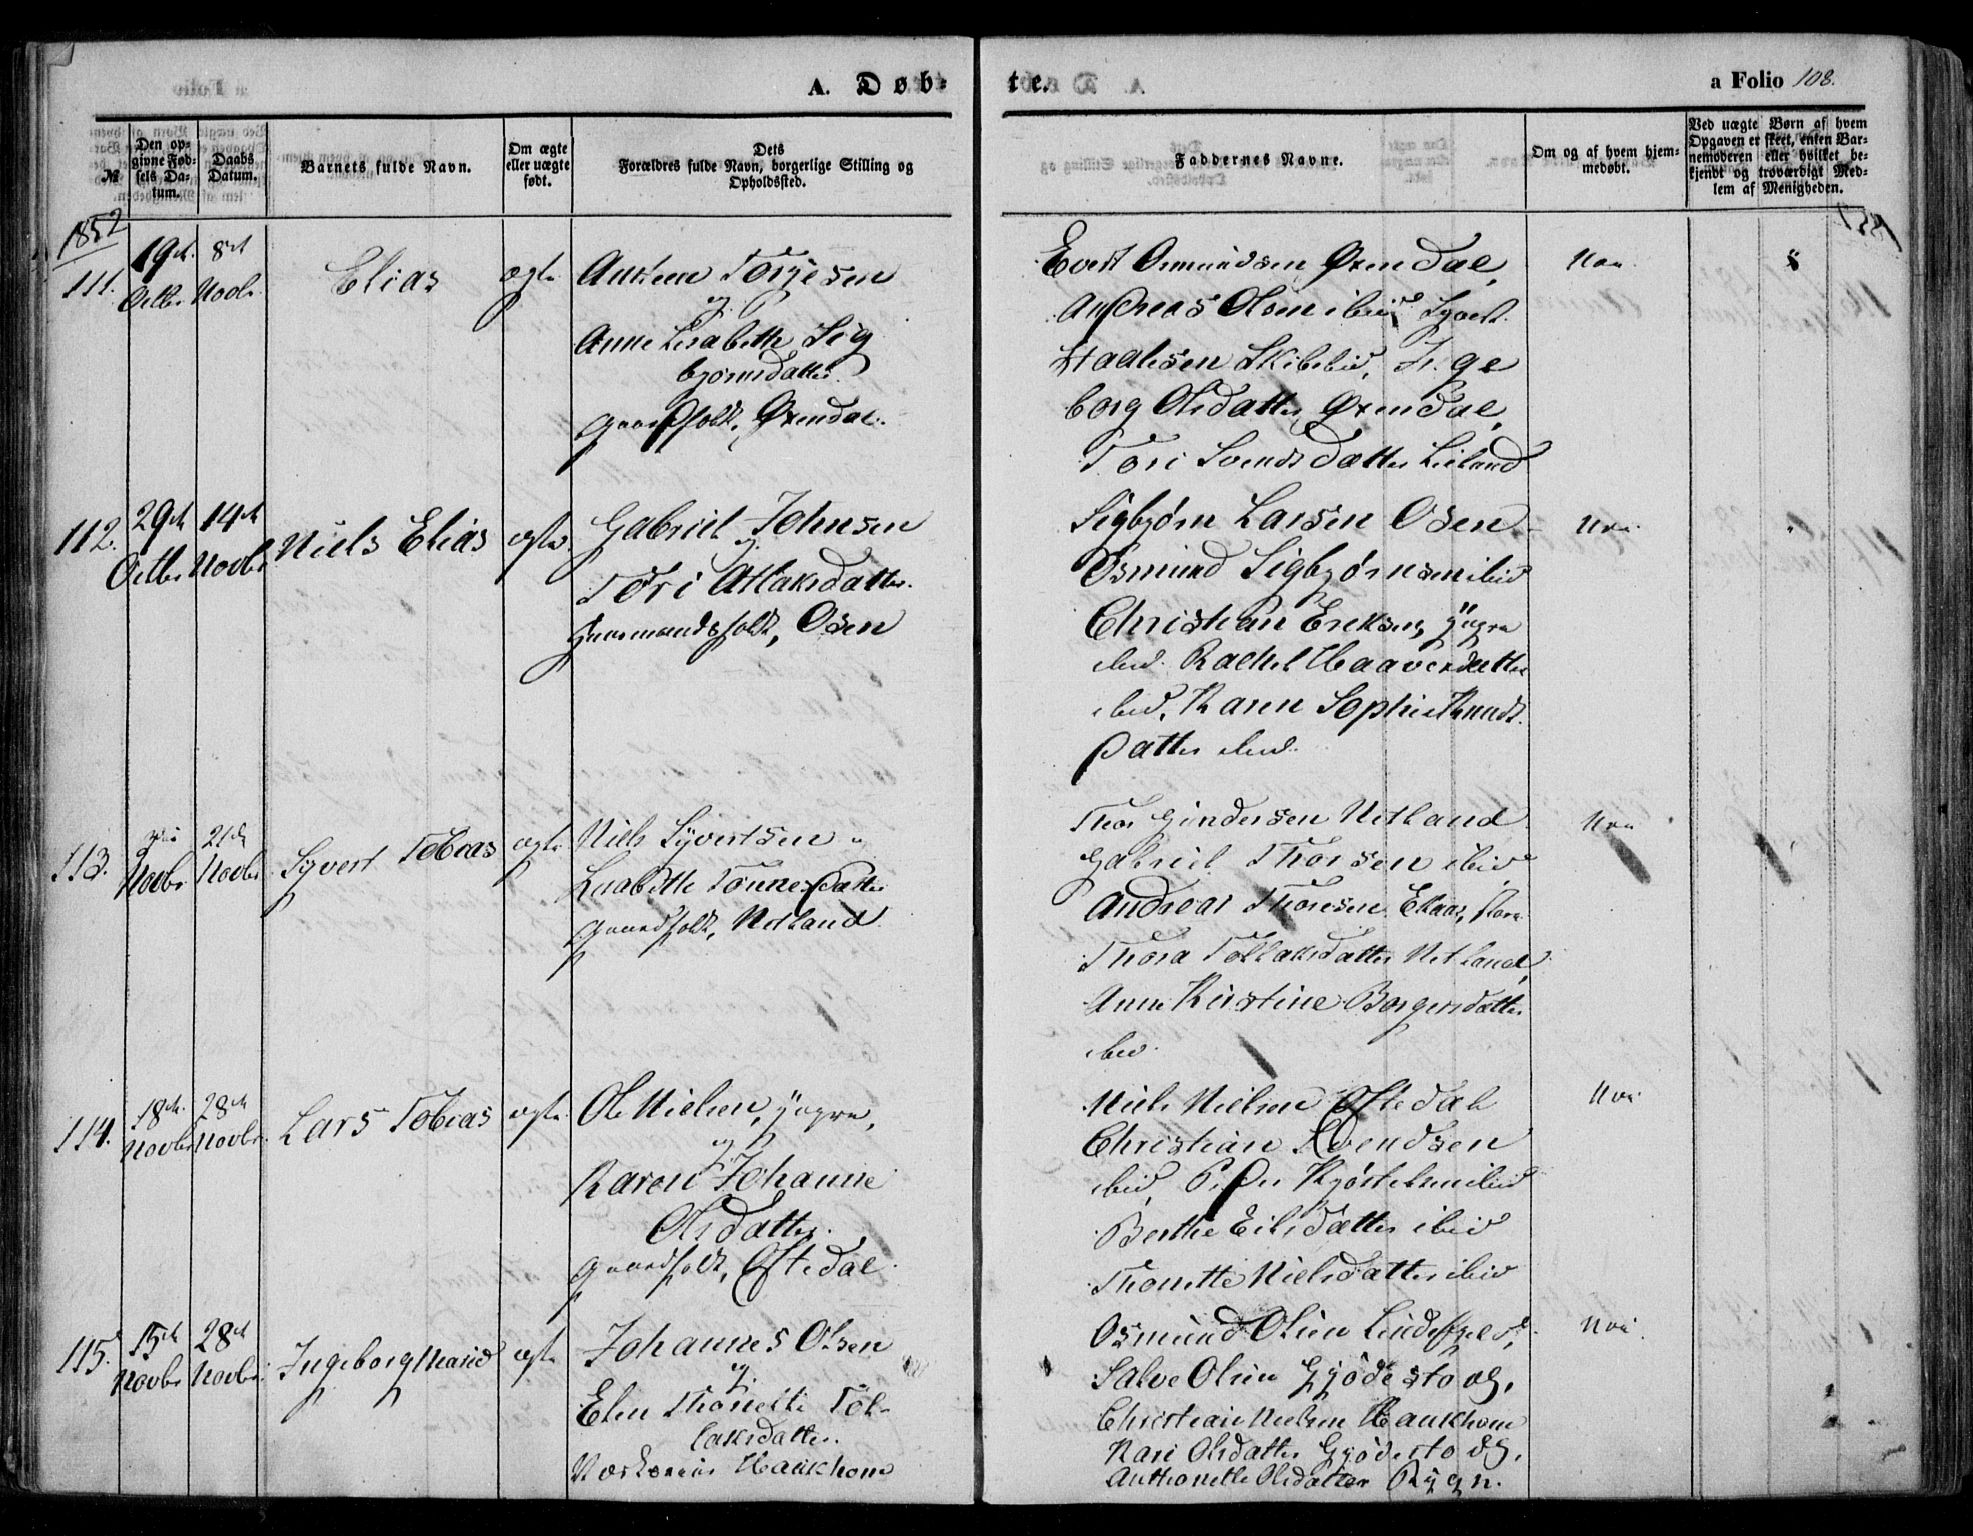 A. Døb-
te.
a Folio 108.
№
Den op-
givne Fød-
sels Da-
tum.
Daabs
Datum.
Barnets fulde Navn.
Om ægte
eller uægte
født.
Dets
Forældres fulde Navn, borgerlige Stilling og
Opholdssted.
Faddernes Navne.
Om og af hvem hjem-
medøbt.
Ved uægte Børn af hvem
Opgaven er skeet, enten Bar-
nemoderen eller hvilket be-
kjendt og troværdigt Med-
lem af Menigheden.
1852
111.
19de
Octbr
8de
Novbr
Elias
ægte
Torjesen
og
Anne Lisabeth Sig
bjørnsdatter
Gaardfolk, Øxendal.
Evert Osmundsen Øxendal,
Andreas Olsen ibid Syvert
Skibelid, Inge
borg Olsdatter Øxendal,
Tori Svendsdatter Leiland
112.
29de
Octbr
14de
Novbr
Niels Elias
ægte
Gabriel Johnsen
og
Tori Atlaksdatter
Huusmandsfolk, Osen
Sigbjørn Larsen Osen
Osmund Sigbjørnsen ibid
Christian Eriksen, yngre
ibid. Rachel Haaversdatter
ibid, Karen Sophie Knuds
datter ibid.
113.
Novbr
21de
Novbr
Syvert Tobias
ægte
Niels Syvertsen og
Lisabethe Tønnesdatter
Gaardfolk, Netland
Thor Gundersen Netland
Gabriel Thorsen ibid
Andreas Thorsen Ekaas,
Thora Tollaksdatter Netland,
Anne Kirstine Borgersdatter
ibid.
114.
18de
Novbr
28de
Novbr
Lars Tobias
ægte
Ole Nielsen, yngre,
og
Karen Johanne
Olsdatter.
Gaardfolk, Oftedal
Niels Nielsen Oftedal
Christian Svendsen
ibid, Peder Kjøstelsen ibid
Berthe Eilsdatter ibid
Thonette Nielsdatter ibid
115.
15de
Novbr
28de
Novbr
Ingeborg Marie
ægte
Johannes Olsen
og
Elen Thonette Tol-
laksdatter.
Haukhom
Osmund Olsen Lindefjeld,
Salve Olsen Gjødestøl,
Christian Nielsen Haukhom
Kari Olsdatter Gjødestøl,
Anthonette Olsdatter